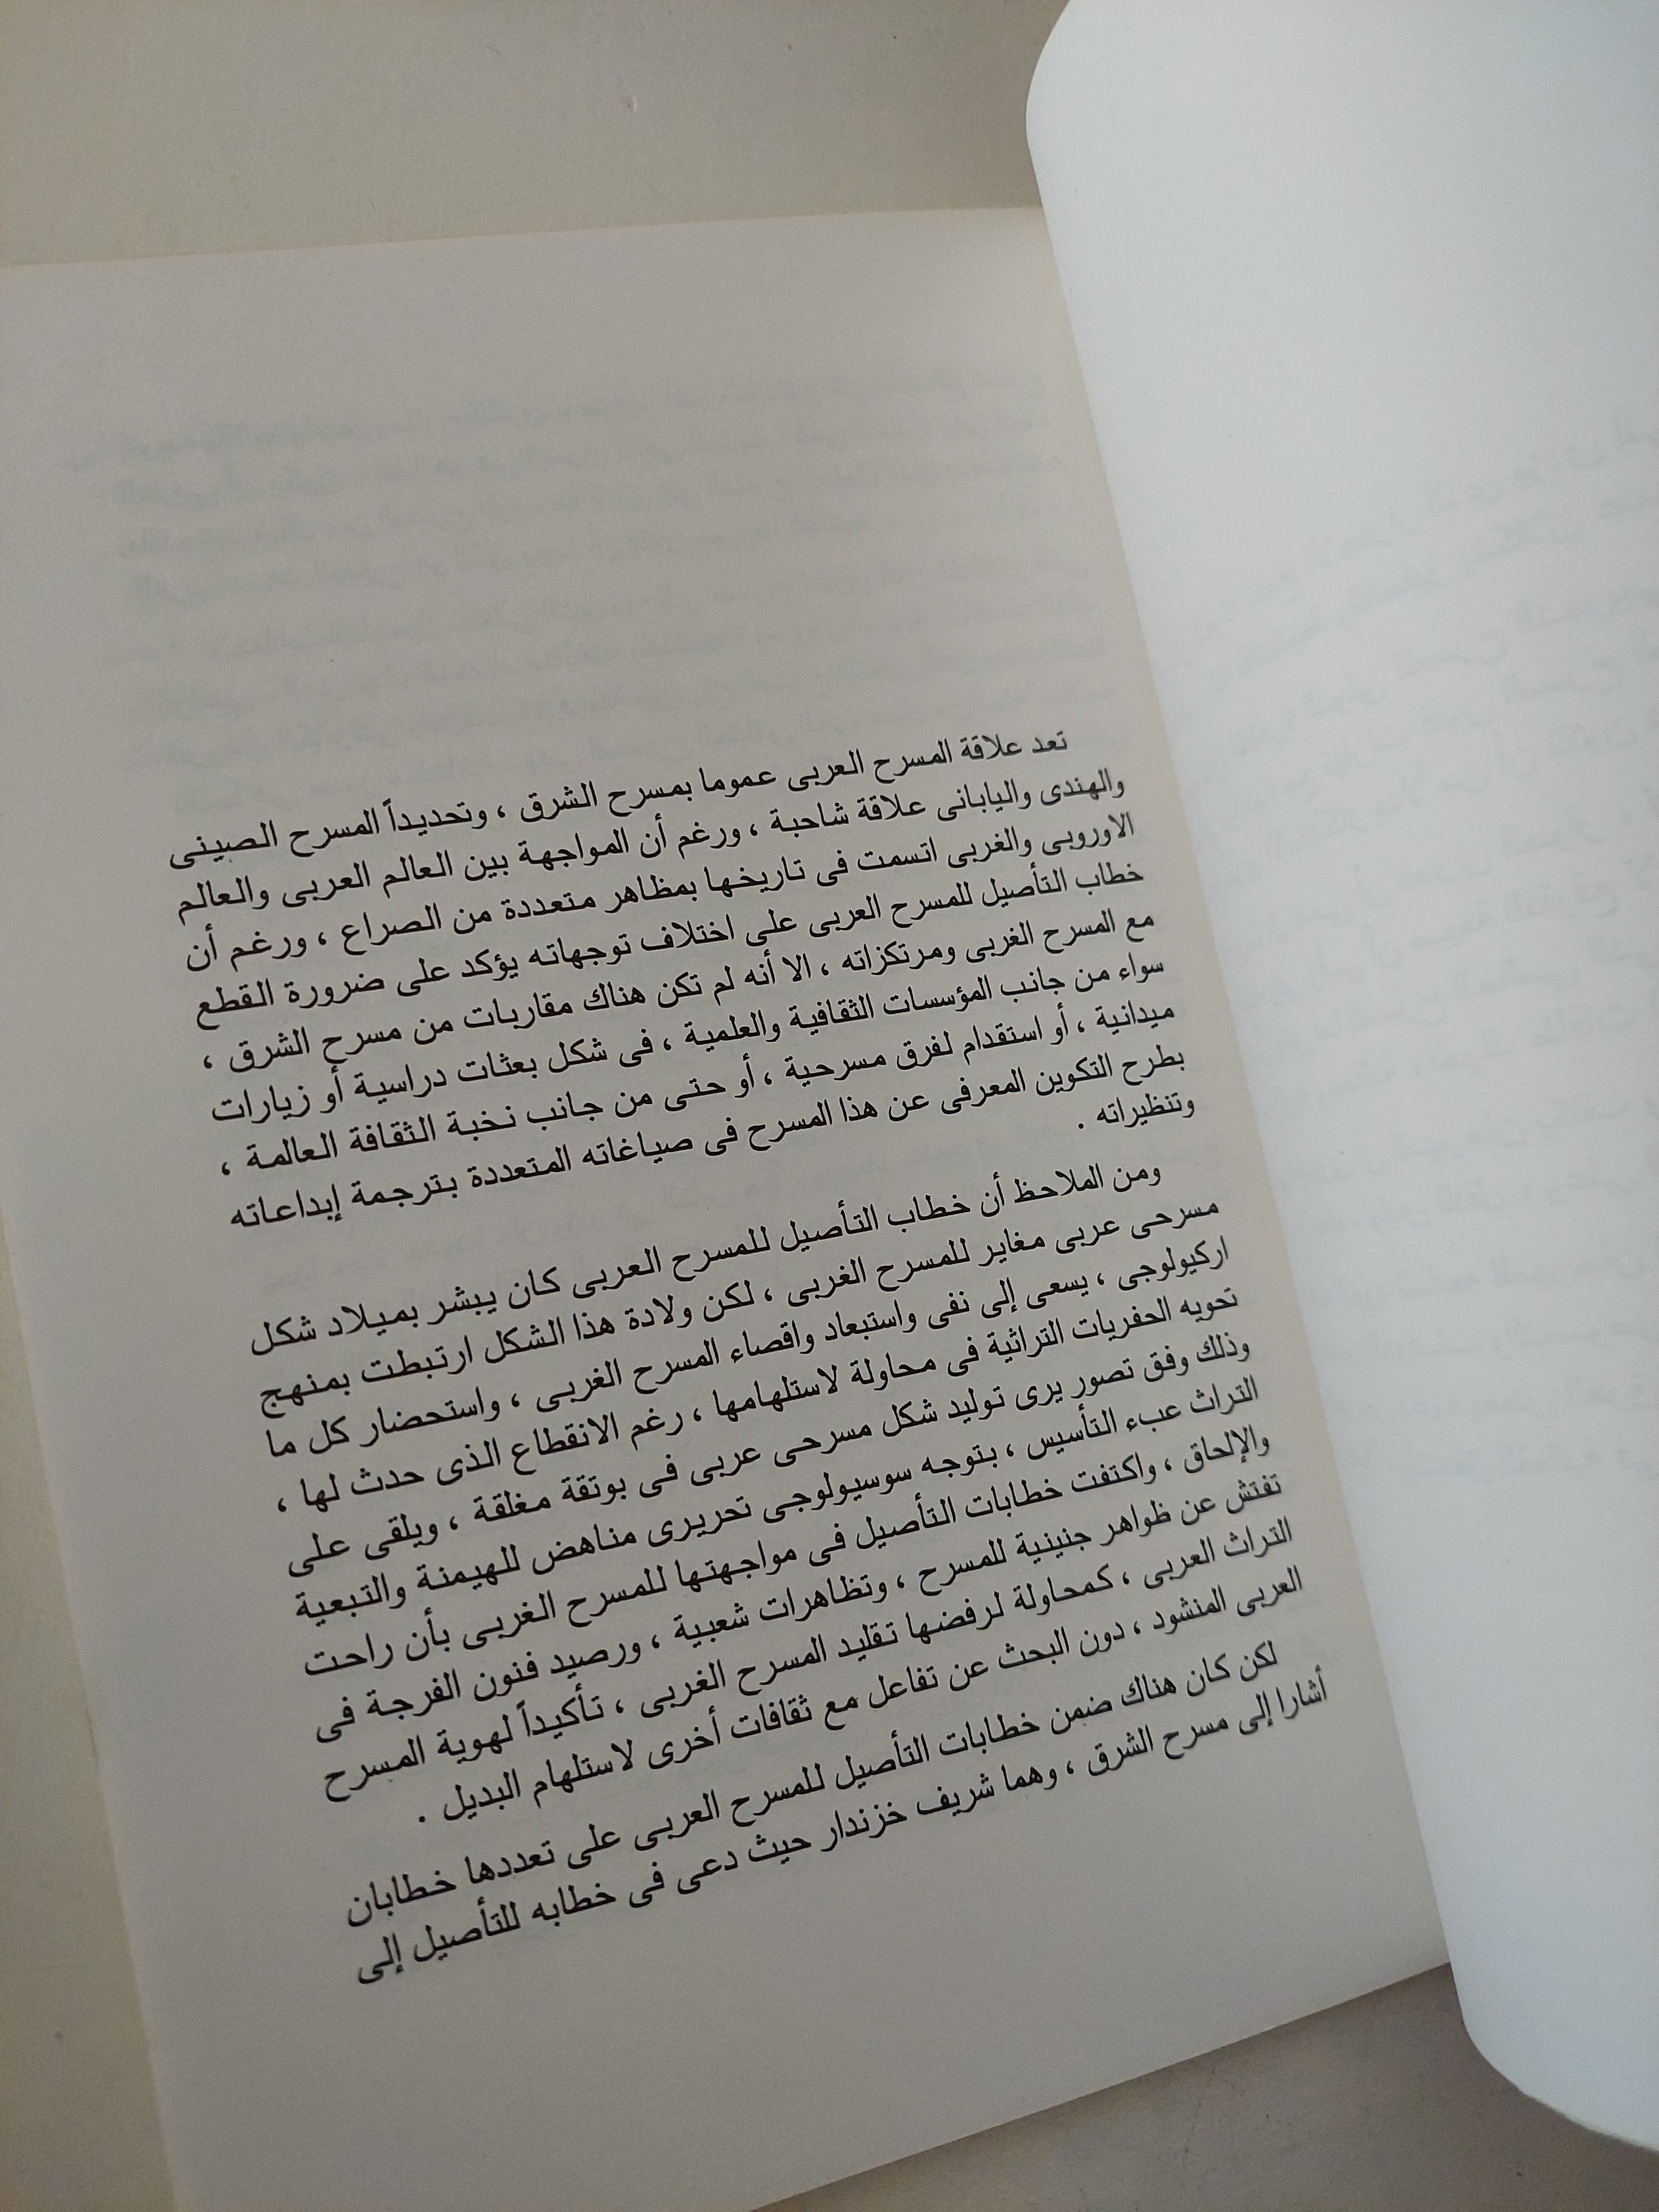 تعد علاقة المسرح العربى عموما بمسرح الشرق ، وتحديداً المسرح الصينى
والهندى واليابانى علاقة شاحبة ، ورغم أن المواجهة بين العالم العربى والعالم
الاوروبى والغربى اتسمت فى تاريخها بمظاهر متعددة من الصراع ، ورغم أن
خطاب التأصيل للمسرح العربى على اختلاف توجهاته يؤكد على ضرورة القطع
مع المسرح الغربى ومرتكزاته ، الا أنه لم تكن هناك مقاربات من مسرح الشرق ،
سواء من جانب المؤسسات الثقافية والعلمية ، فى شكل بعثات دراسية أو زيارات
ميدانية ، أو استقدام لفرق مسرحية ، أو حتى من جانب نخبة الثقافة العالمة ،
بطرح التكوين المعرفى عن هذا المسرح فى صياغاته المتعددة بترجمة إبداعاته
وتنظيراته .
ومن الملاحظ أن خطاب التأصيل للمسرح العربى كان يبشر بميلاد شكل
مسرحى عربى مغاير للمسرح الغربى ، لكن ولادة هذا الشكل ارتبطت بمنهج
اركيولوجى ، يسعى إلى نفى واستبعاد واقصاء المسرح الغربى ، واستحضار كل ما
تحويه الحفريات التراثية فى محاولة لاستلهامها ، رغم الانقطاع الذى حدث لها ،
وذلك وفق تصور يرى توليد شكل مسرحى عربى فى بوتقة مغلقة ، ويلقى على
التراث عبء التأسيس ، بتوجه سوسيولوجى تحريرى مناهض للهيمنة والتبعية
والإلحاق ، واكتفت خطابات التأصيل فى مواجهتها للمسرح الغربى بأن راحت
تفتش عن ظواهر جنينية للمسرح ، وتظاهرات شعبية ، ورصيد فنون الفرجة فى
التراث العربى ، كمحاولة لرفضها تقليد المسرح الغربى ، تأكيداً لهوية المسرح
العربى المنشود ، دون البحث عن تفاعل مع ثقافات أخرى لاستلهام البديل .
لكن كان هناك ضمن خطابات التأصيل للمسرح العربى على تعددها خطابان
أشارا إلى مسرح الشرق ، وهما شريف خزندار حيث دعى فى خطابه للتأصيل إلى